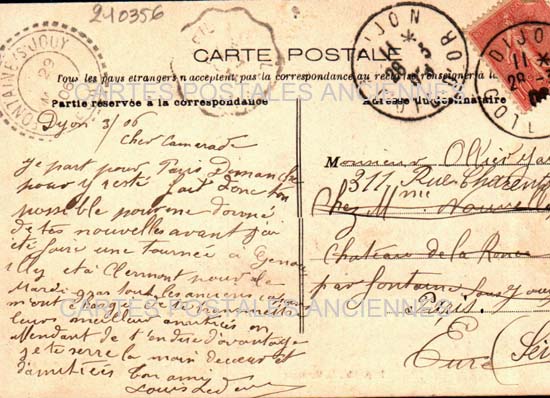 240356
CARTE POSTALE
Tous les pays etrangers n'acceptent pas la correspondance au recto se renseigner à la
Partie réservée à la correspondance
Adresse du destinataire
FONTAINE-S-JOUY
29
DIJON
11
28
COTE D'OR
DIJON
11
28
Dijon 3/06
Cher Camarade
Je part pour Paris Demanche
pour y resté fait donc ton
possible pour me donné
de tes nouvelles avant j'ai
été faire une tournée a
et a Clermont pour le
Mardi gras tout les
m'ont chargé de
leurs meilleur amitiés en
attendant de t'endire d'avantage
je te serre la main de cœur et
d'amitiées ton ami
Louis
Monsieur Olivier
311 Rue Charent
Chez Mme
Chateau de la Ronce
par fontaine sous Jouy
Paris
Eure
CARTES POSTALES ANCIENNES
CARTES POSTALES ANCIENNES